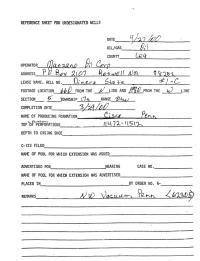 REFERENCE SHEET FOR UNDESIGNATED WELLS
DATE 4/27/00
OIL/GAS Oil
COUNTY Lea
OPERATOR Manzano Oil Corp
ADDRESS P O Box 2107 Roswell NM 88202
LEASE NAME, WELL NO. Dinero State #1-C
FOOTAGE LOCATION 660 FROM THE N LINE AND FROM THE W LINE
SECTION 5 TOWNSHIP 17s RANGE
COMPLETION DATE 3/29/00
NAME OF PRODUCING FORMATION Cisco Penn
TOP OF PERFORATIONS 11472-11512
DEPTH TO CASING SHOE
C-123 FILED
NAME OF POOL FOR WHICH EXTENSION WAS ASKED
ADVERTISED FOR HEARING CASE NO.
NAME OF POOL FOR WHICH EXTENSION WAS ADVERTISED
PLACED IN BY ORDER NO. R-
REMARKS Vacuum Penn